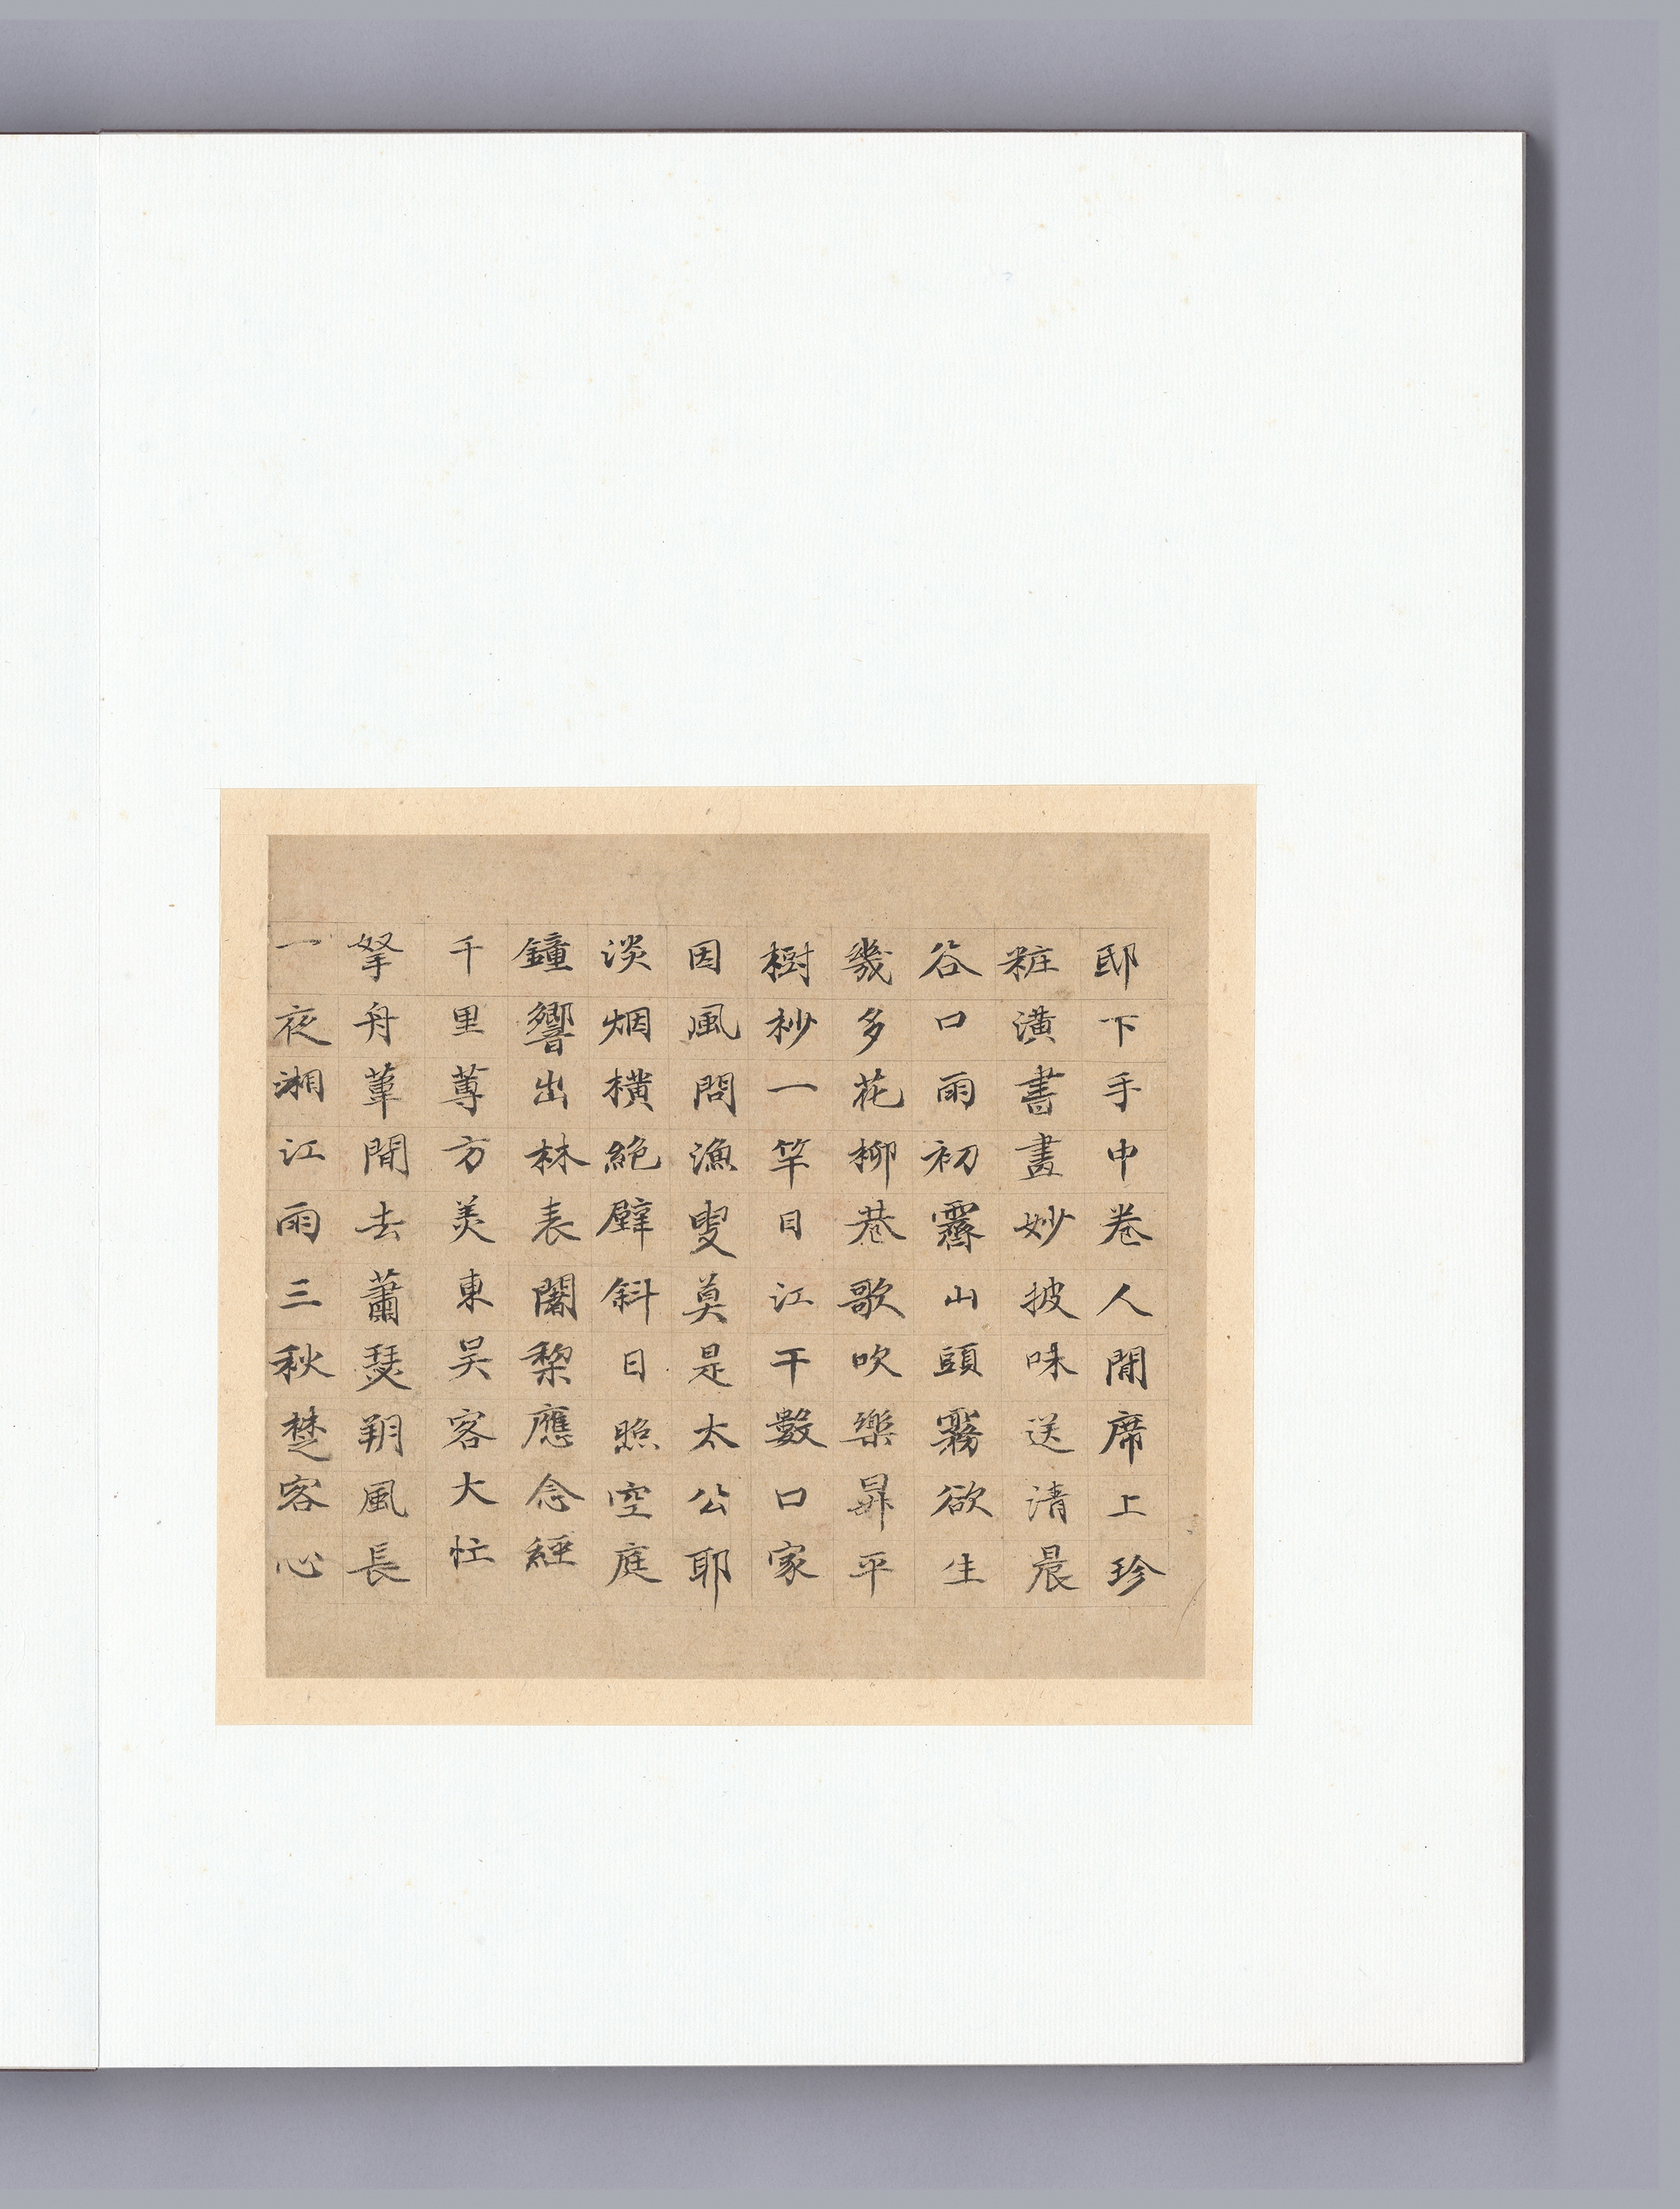 邸下手中卷人間席上珍
粧潢書畫妙披味送清晨
谷口雨初霽山頭霧欲生
幾多花柳巷歌吹樂昇平
樹杪一竿日江干數口家
因風問漁叟莫是太公耶
淡烟橫絕壁斜日照空庭
鐘響出林表闍梨應念經
千里蓴方美東吳客大忙
拏舟葦間去蕭瑟朔風長
一夜湘江雨三秋楚客心